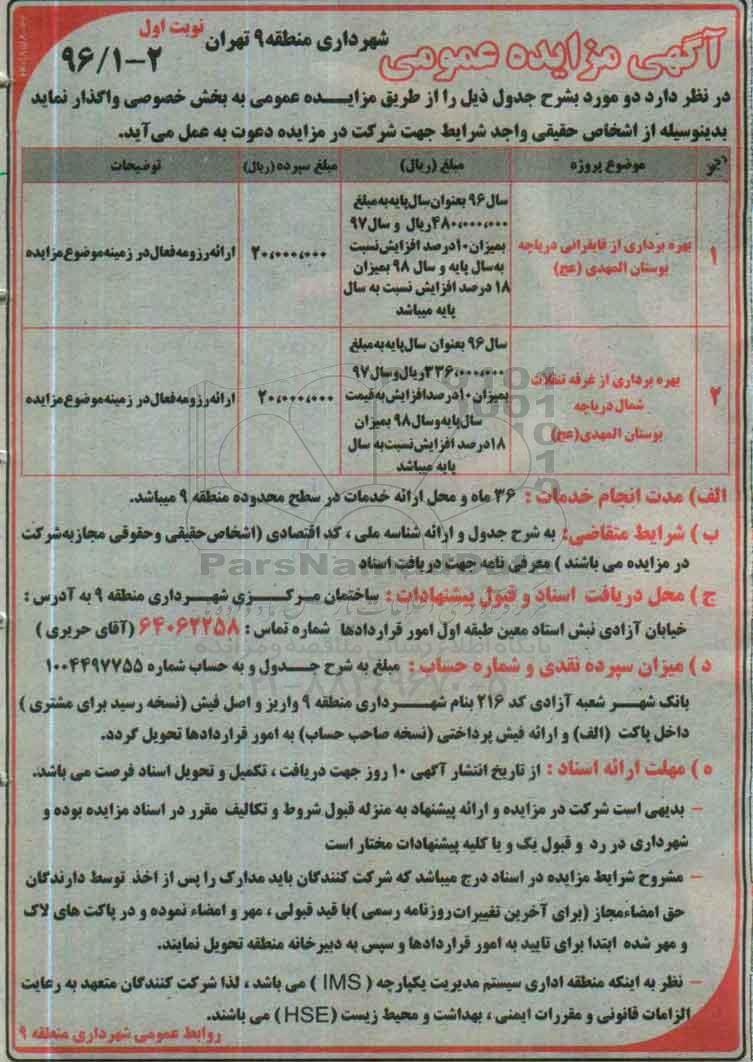 آگهی مزایده عمومی
شهرداری منطقه ۹ تهران
نوبت اول
۹۶/۱-۲
در نظر دارد دو مورد بشرح جدول ذیل را از طریق مزایـــده عمومی به بخش خصوصی واگذار نماید
بدینوسیله از اشخاص حقیقی واجد شرایط جهت شرکت در مزایده دعوت به عمل می‌آید.
موضوع پروژه
مبلغ (ریال)
مبلغ سپرده (ریال)
توضیحات
۱
بهره برداری از قایقرانی دریاچه
بوستان المهدی (عج)
سال ۹۶ بعنوان سال پایه به مبلغ
۴۸۰،۰۰۰،۰۰۰ ریال و سال ۹۷
بمیزان ۱۰ درصد افزایش نسبت
به سال پایه و سال ۹۸ بمیزان
۱۸ درصد افزایش نسبت به سال
پایه میباشد
۲۰،۰۰۰،۰۰۰
ارائه رزومه فعال در زمینه موضوع مزایده
۲
بهره برداری از غرفه تنقلات
شمال دریاچه
بوستان المهدی (عج)
سال ۹۶ بعنوان سال پایه به مبلغ
۳۳۶،۰۰۰،۰۰۰ ریال و سال ۹۷
بمیزان ۱۰ درصد افزایش به قیمت
سال پایه و سال ۹۸ بمیزان
۱۸ درصد افزایش نسبت به سال
پایه میباشد
۲۰،۰۰۰،۰۰۰
ارائه رزومه فعال در زمینه موضوع مزایده
الف) مدت انجام خدمات : ۳۶ ماه و محل ارائه خدمات در سطح محدوده منطقه ۹ میباشد.
ب ) شرایط متقاضی: به شرح جدول و ارائه شناسه ملی ، کد اقتصادی (اشخاص حقیقی وحقوقی مجاز به شرکت
در مزایده می باشند ) معرفی نامه جهت دریافت اسناد
ج ) محل دریافت اسناد و قبول پیشنهادات : ساختمان مرکـــزی شهـــرداری منطقه ۹ به آدرس :
خیابان آزادی نبش استاد معین طبقه اول امور قراردادها شماره تماس : ۶۴۰۶۲۲۵۸ (آقای حریری )
د ) میزان سپرده نقدی و شماره حساب : مبلغ به شرح جـــدول و به حساب شماره ۱۰۰۴۴۹۷۷۵۵
بانک شهـــر شعبه آزادی کد ۲۱۶ بنام شهـــرداری منطقه ۹ واریز و اصل فیش (نسخه رسید برای مشتری )
داخل پاکت (الف) و ارائه فیش پرداختی (نسخه صاحب حساب) به امور قراردادها تحویل گردد.
ه ) مهلت ارائه اسناد : از تاریخ انتشار آگهی ۱۰ روز جهت دریافت ، تکمیل و تحویل اسناد فرصت می باشد.
– بدیهی است شرکت در مزایده و ارائه پیشنهاد به منزله قبول شروط و تکالیف مقرر در اسناد مزایده بوده و
شهرداری در رد و قبول یک و یا کلیه پیشنهادات مختار است
– مشروح شرایط مزایده در اسناد درج میباشد که شرکت کنندگان باید مدارک را پس از اخذ توسط دارندگان
حق امضاءمجاز (برای آخرین تغییرات روزنامه رسمی )با قید قبولی ، مهر و امضاء نموده و در پاکت های لاک
و مهر شده ابتدا برای تایید به امور قراردادها و سپس به دبیرخانه منطقه تحویل نمایند.
– نظر به اینکه منطقه اداری سیستم مدیریت یکپارچه ( IMS ) می باشد ، لذا شرکت کنندگان متعهد به رعایت
الزامات قانونی و مقررات ایمنی ، بهداشت و محیط زیست (HSE) می باشند.
روابط عمومی شهرداری منطقه ۹
ParsNamadData
پایگاه اطلاع رسانی مناقصه و مزایده